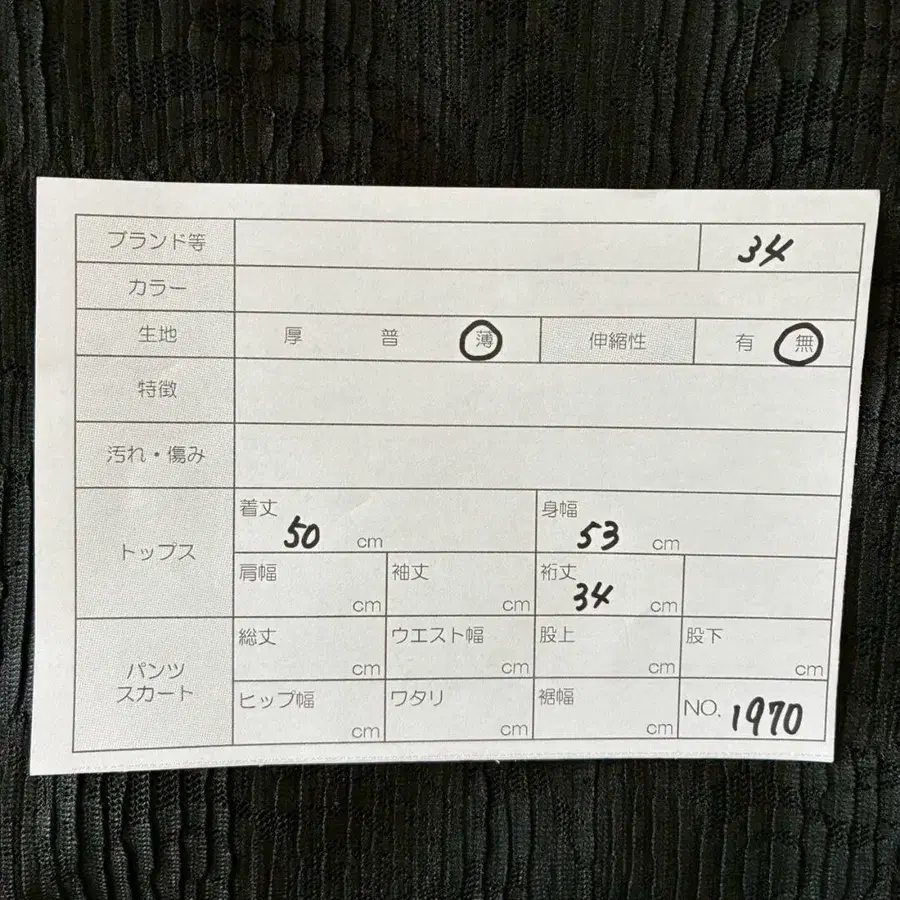 ブランド等 34
カラー
生地 厚 普 薄 伸縮性 有 無
特徴
汚れ・傷み
トップス
着丈 50 cm 身幅 53 cm
肩幅 cm 袖丈 cm 裄丈 34 cm
パンツ
スカート
総丈 cm ウエスト幅 cm 股上 cm 股下 cm
ヒップ幅 cm ワタリ cm 裾幅 cm NO. 1970